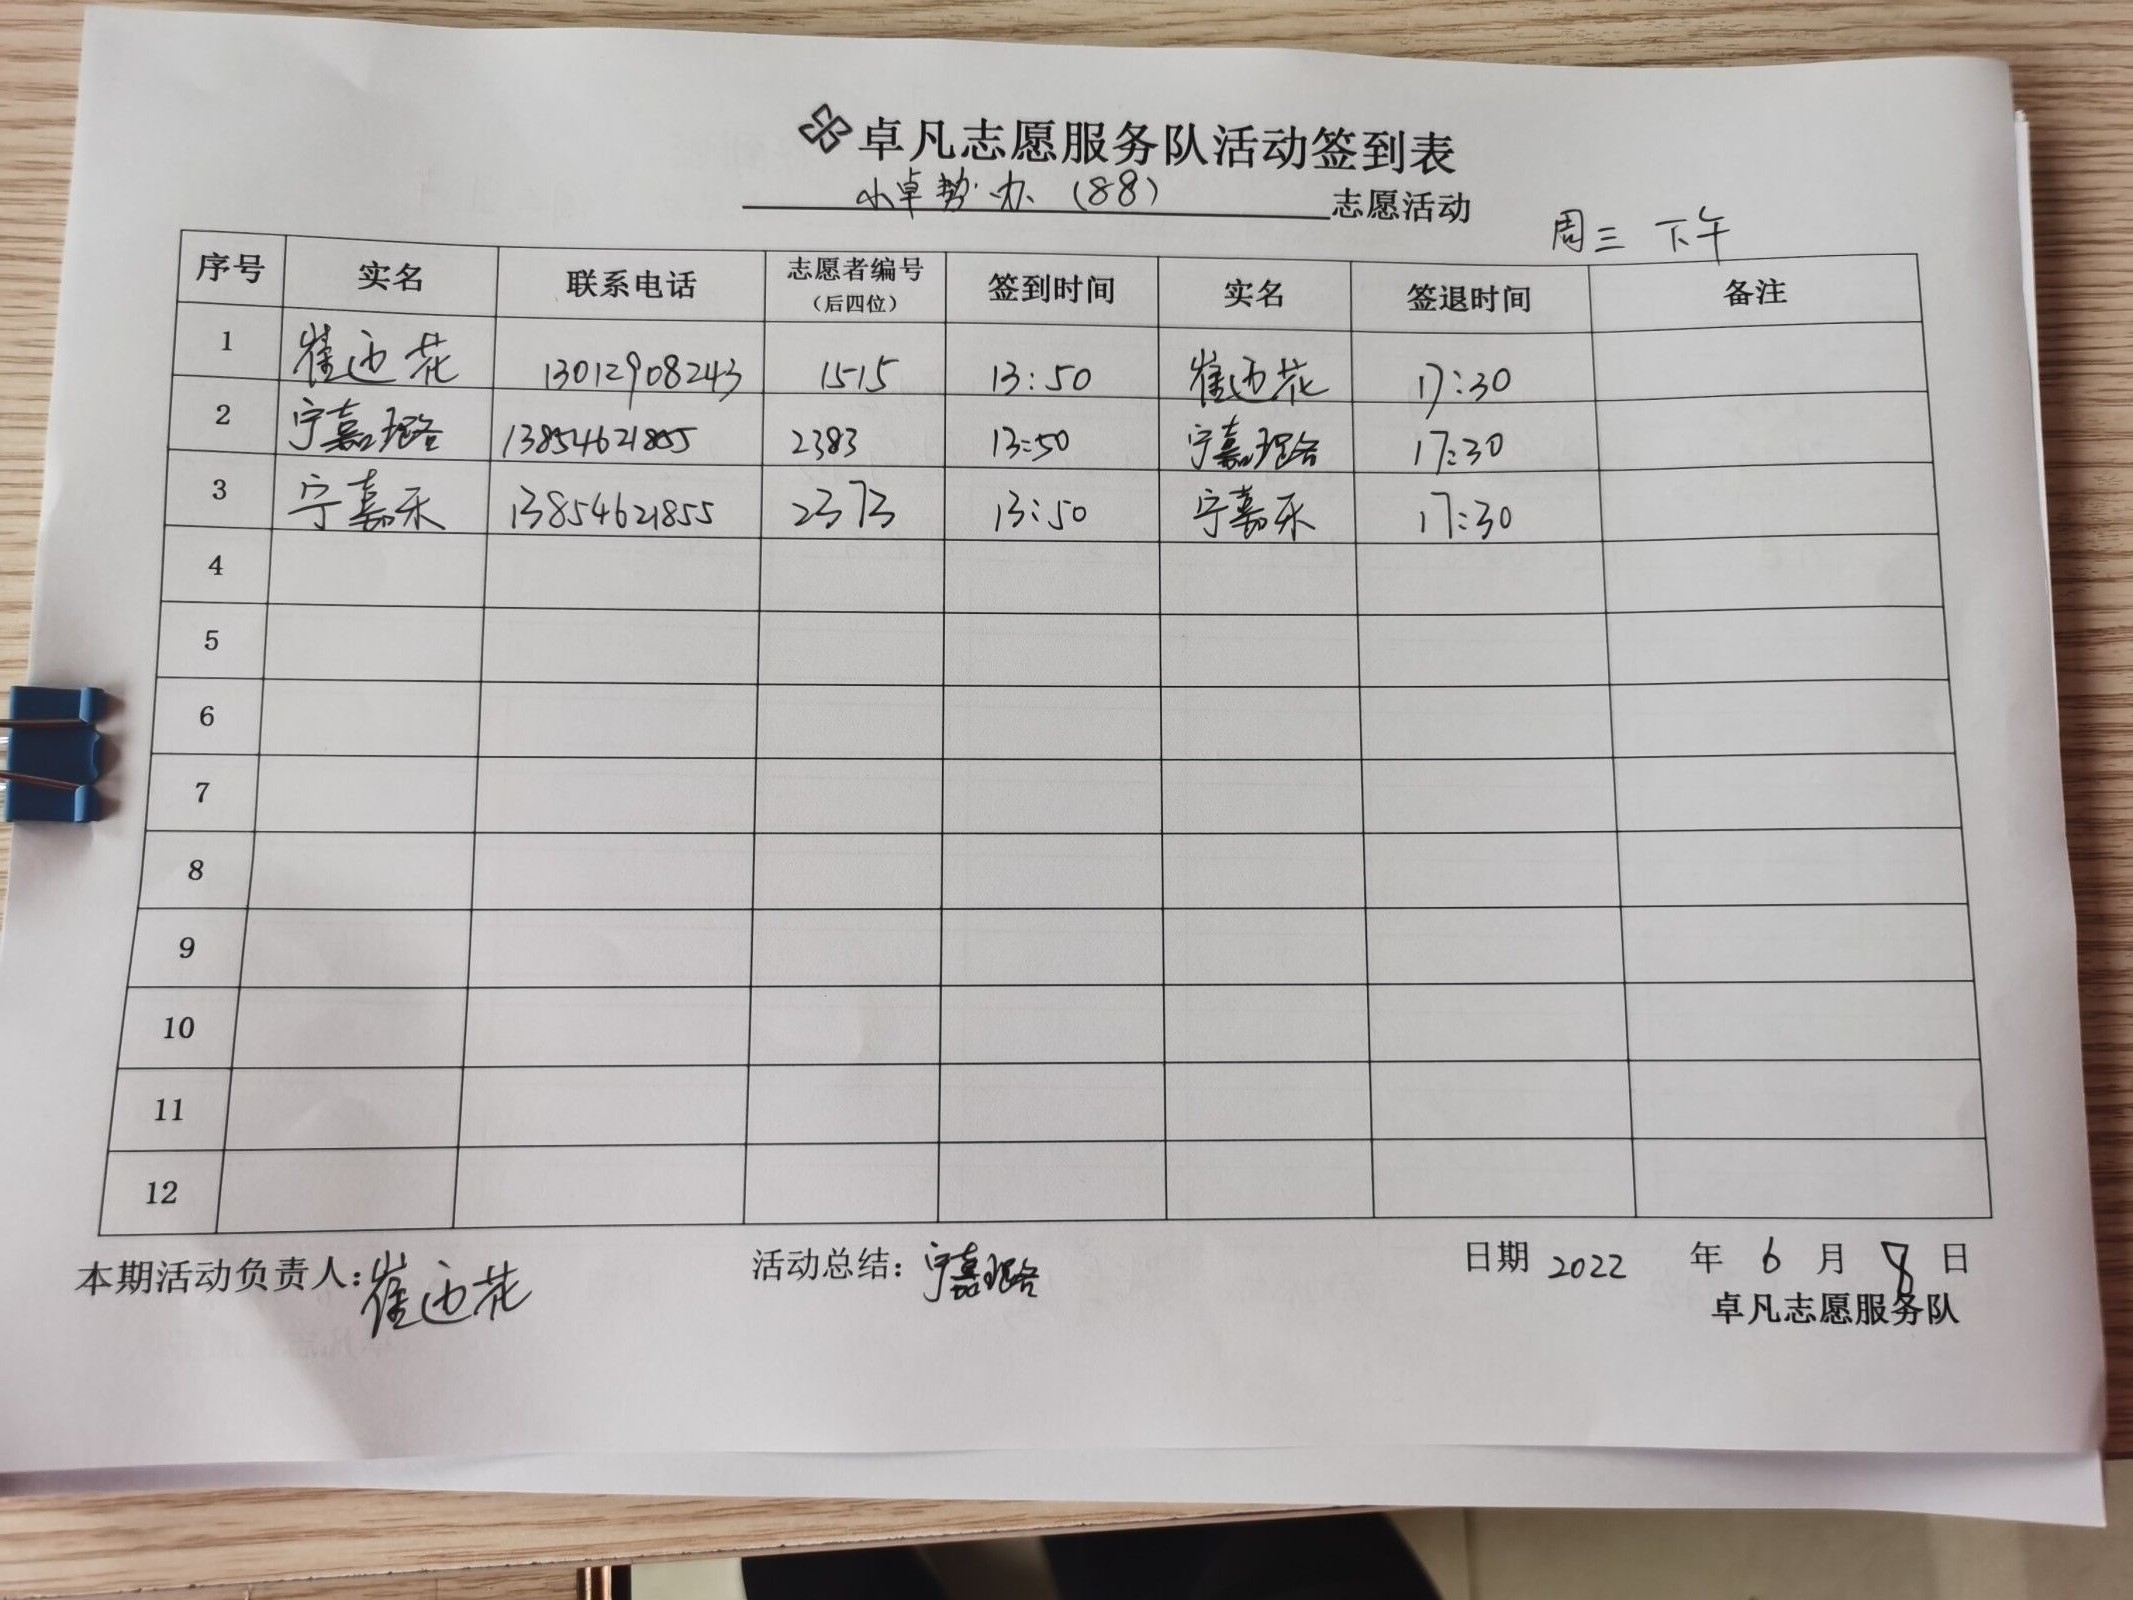 卓凡志愿服务队活动签到表
小卓 办(88) 志愿活动
周三 下午
序号 实名 联系电话 志愿者编号(后四位) 签到时间 实名 签退时间 备注
1 崔迎花 13012908243 1515 13:50 崔迎花 17:30
2 宁嘉璐 13854621855 2383 13:50 宁嘉璐 17:30
3 宁嘉禾 13854621855 2373 13:50 宁嘉禾 17:30
4
5
6
7
8
9
10
11
12
本期活动负责人:崔迎花 活动总结:宁嘉璐 日期 2022 年 6 月 8 日
卓凡志愿服务队